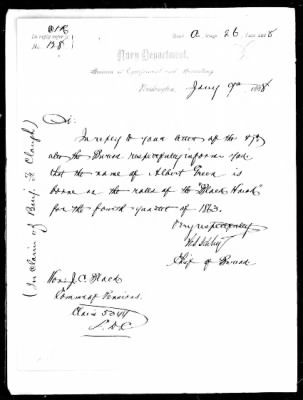 Navy Department,
Bureau of Equipment and Recruiting
Washington, Jany 9th 188
Sir:
In reply to your letter of the
the Bureau respectfully informs you
that the name of Albert Green is
borne on the rolls of the "Black Hawk"
for the fourth quarter of 1863.
Very respectfully
Chief of Bureau
Hon. J. C. Black
Comr of Pensions.
Claim 5044
(In Claim of Benj. F. Clough)